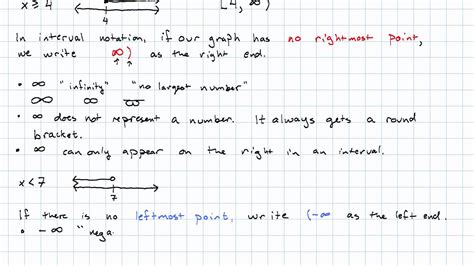 x ≥ 4 [4, ∞)
4
In interval notation, if our graph has no rightmost point,
we write ∞) as the right end.
• ∞ "infinity" "no largest number"
∞ ∞ ϖ
• ∞ does not represent a number. It always gets a round
bracket.
• ∞ can only appear on the right in an interval.
x < 7
7
If there is no leftmost point, write (-∞ as the left end.
• -∞ "nega